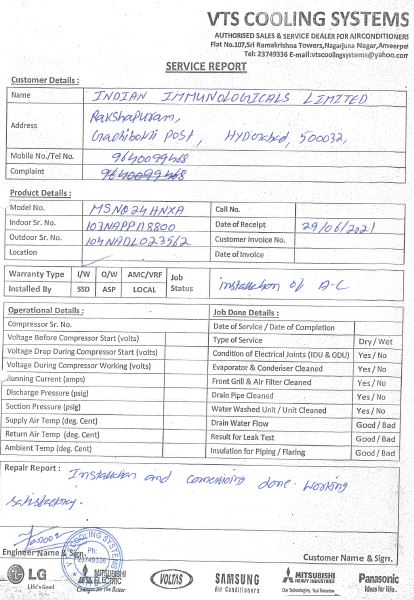 VTS COOLING SYSTEMS
AUTHORISED SALES & SERVICE DEALER FOR AIRCONDITIONERS
Flat No.107, Sri Ramakrishna Towers, Nagarjuna Nagar, Ameerpet
Tel: 23749336 E-mail:vtscoolingsystems@yahoo.com
SERVICE REPORT
Customer Details :
Name INDIAN IMMUNOLOGICALS LIMITED
Address Rakshapuram,
Gachibowli POST, HYDerabad, 500032,
Mobile No./Tel No. 9640099468
Complaint 9640099468
Product Details :
Model No. Call No.
Indoor Sr. No. Date of Receipt 29/06/2021
Outdoor Sr. No. 104NADL023562 Customer Invoice No.
Location Date of Invoice
Warranty Type I/W O/W AMC/VRF Job Status installation of A-C
Installed By SSD ASP LOCAL
Operational Details : Job Done Details :
Compressor Sr. No. Date of Service / Date of Completion
Voltage Before Compressor Start (volts) Type of Service Dry / Wet
Voltage Drop During Compressor Start (volts) Condition of Electrical Joints (IDU & ODU) Yes / No
Voltage During Compressor Working (volts) Evaporator & Condenser Cleaned Yes / No
Running Current (amps) Front Grill & Air Filter Cleaned Yes / No
Discharge Pressure (psig) Drain Pipe Cleaned Yes / No
Suction Pressure (psig) Water Washed Unit / Unit Cleaned Yes / No
Supply Air Temp (deg. Cent) Drain Water Flow Good / Bad
Return Air Temp (deg. Cent) Result for Leak Test Good / Bad
Ambient Temp (deg. Cent) Insulation for Piping / Flaring Good / Bad
Repair Report : Installation and done. working
satisfactory.
COOLING SYSTEMS
Ph:
23749336
Engineer Name & Sign. Customer Name & Sign.
LG Life's Good
MITSUBISHI ELECTRIC Changes for the Better
VOLTAS
SAMSUNG Air Conditioners
MITSUBISHI HEAVY INDUSTRIES Our Technologies, Your Tomorrow
Panasonic ideas for life